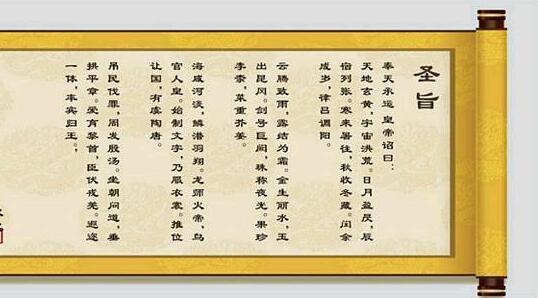 圣旨
奉天承运,皇帝诏曰:
天地玄黄,宇宙洪荒。日月盈昃,辰
宿列张。寒来暑往,秋收冬藏。闰余
成岁,律吕调阳。
云腾致雨,露结为霜。金生丽水,玉
出昆冈。剑号巨阙,珠称夜光。果珍
李柰,菜重芥姜。
海咸河淡,鳞潜羽翔。龙师火帝,鸟
官人皇。始制文字,乃服衣裳。推位
让国,有虞陶唐。
吊民伐罪,周发殷汤。坐朝问道,垂
拱平章。爱育黎首,臣伏戎羌。遐迩
一体,率宾归王。